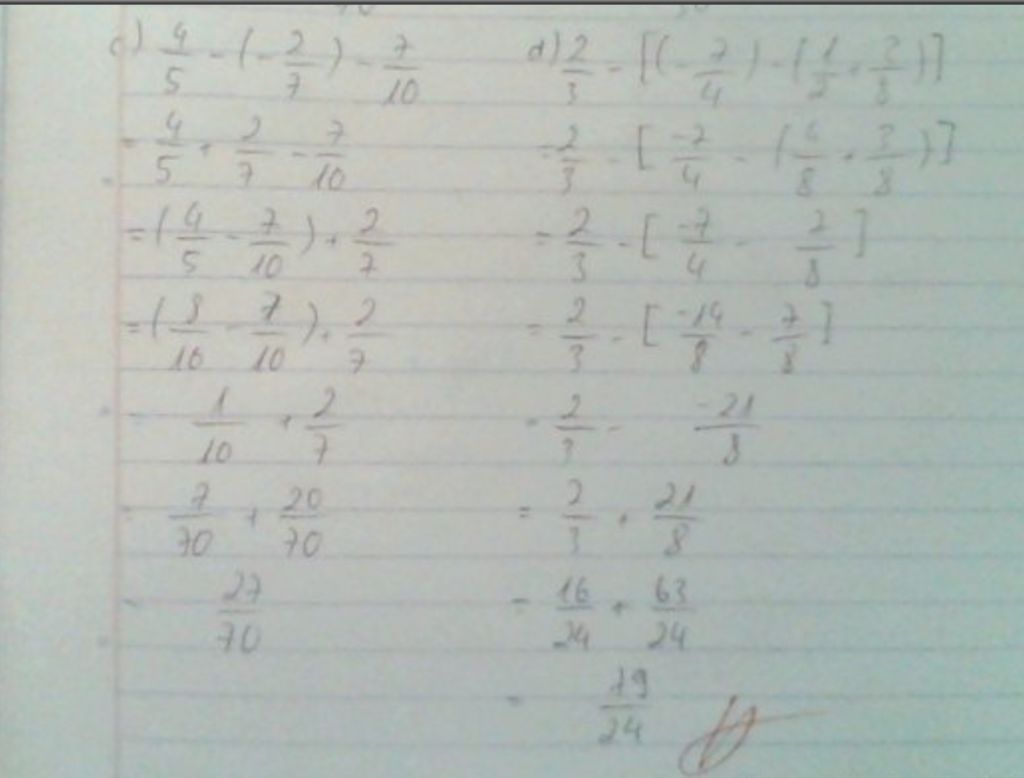 c) 4/5 - (- 2/7) - 7/10
= 4/5 + 2/7 - 7/10
= (4/5 - 7/10) + 2/7
= (8/10 - 7/10) + 2/7
= 1/10 + 2/7
= 7/70 + 20/70
= 27/70
d) 2/3 - [(- 7/4) - (1/2 + 3/8)]
= 2/3 - [-7/4 - (4/8 + 3/8)]
= 2/3 - [-7/4 - 7/8]
= 2/3 - [-14/8 - 7/8]
= 2/3 - -21/8
= 2/3 + 21/8
= 16/24 + 63/24
= 79/24